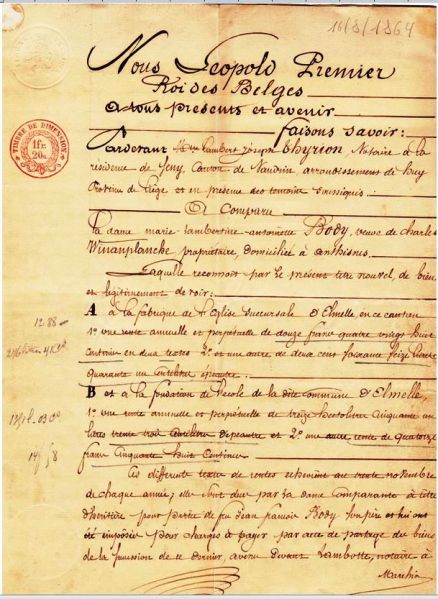 16/8/1864
Nous Leopold Premier
Roi des Belges
A tous présents et avenir
faisons savoir:
TIMBRE DE DIMENSION
1 fr. 20c.
Pardevant Mtre Lambert Joseph Thyrion, Notaire à la
résidence de Seny, Canton de Nandrin, arrondissement de Huy
Province de Liège et en présence des témoins soussignés.
A Comparu
La dame marie Lambertine antoinette Body, veuve de Charles
Winanplanche propriétaire, domiciliée à anthisnes.
Laquelle reconnoit par le présent titre nouvel, de bien
et légitimement devoir:
A à la fabrique de l'Eglise succursale d'Elmelle, en ce canton
1° une rente annuelle et perpétuelle de douze francs quatre vingt huit
Centimes en deux textes 2° et une autre de deux cent soixante seize litres
quarante un centilitres épeautre.
12 88
B et à la fondation de l'école de la dite commune d'Elmelle,
1° une rente annuelle et perpétuelle de treize hectolitres Cinquante un
litres trente trois centilitres d'épeautre et 2° une autre rente de quatorze
francs Cinquante huit Centimes
14 f 58
Ces différents textes de rentes échéent au trente novembre
de chaque année; elles sont dues par la dame Comparante à titre
d'héritière pour partie de feu Jean françois Body son père et lui ont
été imposées pour charges à payer par acte de partage des biens
de la succession de ce dernier, avenu devant Lambotte, notaire à
Marchin